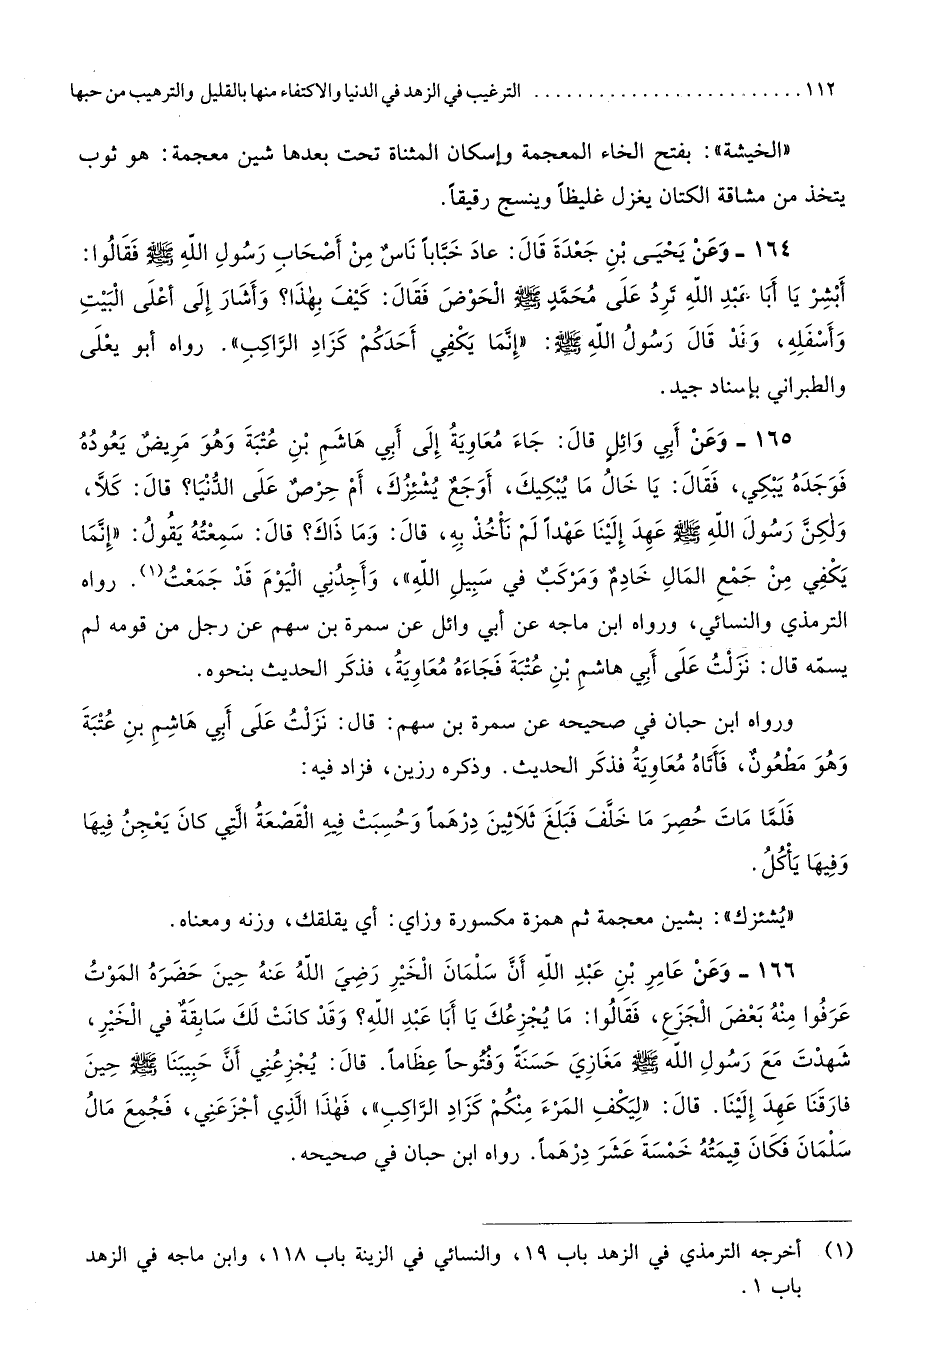 ١١٢ ......................... الترغيب في الزهد في الدنيا والاكتفاء منها بالقليل والترهيب من حبها
«الخيشة»: بفتح الخاء المعجمة وإسكان المثناة تحت بعدها شين معجمة: هو ثوب
يتخذ من مشاقة الكتان يغزل غليظاً وينسج رقيقاً.
١٦٤ ـ وَعَنْ يَحْيَـى بْنِ جَعْدَةَ قَالَ: عادَ خَبَّاباً نَاسٌ مِنْ أَصْحَابِ رَسُولِ اللّهِ ﷺ فَقَالُوا:
أَبْشِرْ يَا أَبَا عَبْدِ اللّهِ تَرِدُ عَلَى مُحَمَّدٍ ﷺ الْحَوْضَ فَقَالَ: كَيْفَ بِهٰذَا؟ وَأَشَارَ إِلَى أَعْلَى الْبَيْتِ
وَأَسْفَلِهِ، وَقَدْ قَالَ رَسُولُ اللّهِ ﷺ: «إِنَّمَا يَكْفِي أَحَدَكُمْ كَزَادِ الرَّاكِبِ». رواه أبو يعْلَى
والطبراني بإسناد جيد.
١٦٥ ـ وَعَنْ أَبِي وَائِلٍ قالَ: جَاءَ مُعَاوِيَةُ إِلَى أَبِي هَاشَمٍ بْنِ عُتْبَةَ وَهُوَ مَرِيضٌ يَعُودُهُ
فَوَجَدَهُ يَبْكِي، فَقَالَ: يَا خَالُ مَا يُبْكِيكَ، أَوَجَعٌ يُشْئِزُكَ، أَمْ حِرْصٌ عَلَى الدُّنْيَا؟ قالَ: كَلاَّ،
وَلٰكِنَّ رَسُولَ اللّهِ ﷺ عَهِدَ إِلَيْنَا عَهْداً لَمْ نَأْخُذْ بِهِ، قالَ: وَمَا ذَاكَ؟ قالَ: سَمِعْتُهُ يَقُولُ: «إِنَّمَا
يَكْفِي مِنْ جَمْعِ المَالِ خَادِمٌ وَمَرْكَبٌ في سَبِيلِ اللّهِ»، وَأَجِدُنِي الْيَوْمَ قَدْ جَمَعْتُ(١). رواه
الترمذي والنسائي، ورواه ابن ماجه عن أبي وائل عن سمرة بن سهم عن رجل من قومه لم
يسمّه قال: نَزَلْتُ عَلَى أَبِي هاشمِ بْنِ عُتْبَةَ فَجَاءَهُ مُعَاوِيَةُ، فذكَر الحديث بنحوه.
ورواه ابن حبان في صحيحه عن سمرة بن سهم: قال: نَزَلْتُ عَلَى أَبِي هَاشِمٍ بنِ عُتْبَةَ
وَهُوَ مَطْعُونٌ، فَأَتَاهُ مُعَاوِيَةُ فذكَر الحديث. وذكره رزين، فزاد فيه:
فَلَمَّا مَاتَ حُصِرَ مَا خَلَّفَ فَبَلَغَ ثَلاَثِينَ دِرْهَماً وَحُسِبَتْ فِيهِ الْقَصْعَةُ الَّتِي كانَ يَعْجِنُ فِيهَا
وَفِيهَا يَأْكُلُ.
«يُشئزك»: بشين معجمة ثم همزة مكسورة وزاي: أي يقلقك، وزنه ومعناه.
١٦٦ ـ وَعَنْ عَامِرِ بْنِ عَبْدِ اللّهِ أَنَّ سَلْمَانَ الْخَيْرِ رَضِيَ اللّهُ عَنهُ حِينَ حَضَرَهُ المَوْتُ
عَرَفُوا مِنْهُ بَعْضَ الْجَزَعِ، فَقَالُوا: مَا يُجْزِعُكَ يَا أَبَا عَبْدِ اللّهِ؟ وَقَدْ كانَتْ لَكَ سَابِقَةٌ في الْخَيْرِ،
شَهِدْتَ مَعَ رَسُولِ اللّهِ ﷺ مَغَازِيَ حَسَنَةً وَفُتُوحاً عِظَاماً. قالَ: يُجْزِعُنِي أَنَّ حَبِيبَنَا ﷺ حِينَ
فارَقَنَا عَهِدَ إِلَيْنَا. قالَ: «لِيَكْفِ المَرْءَ مِنْكُمْ كَزَادِ الرَّاكِبِ»، فَهٰذَا الَّذِي أَجْزَعَنِي، فَجُمِعَ مَالُ
سَلْمَانَ فَكَانَ قِيمَتُهُ خَمْسَةَ عَشَرَ دِرْهَماً. رواه ابن حبان في صحيحه.
(١) أخرجه الترمذي في الزهد باب ١٩، والنسائي في الزينة باب ١١٨، وابن ماجه في الزهد
باب ١.